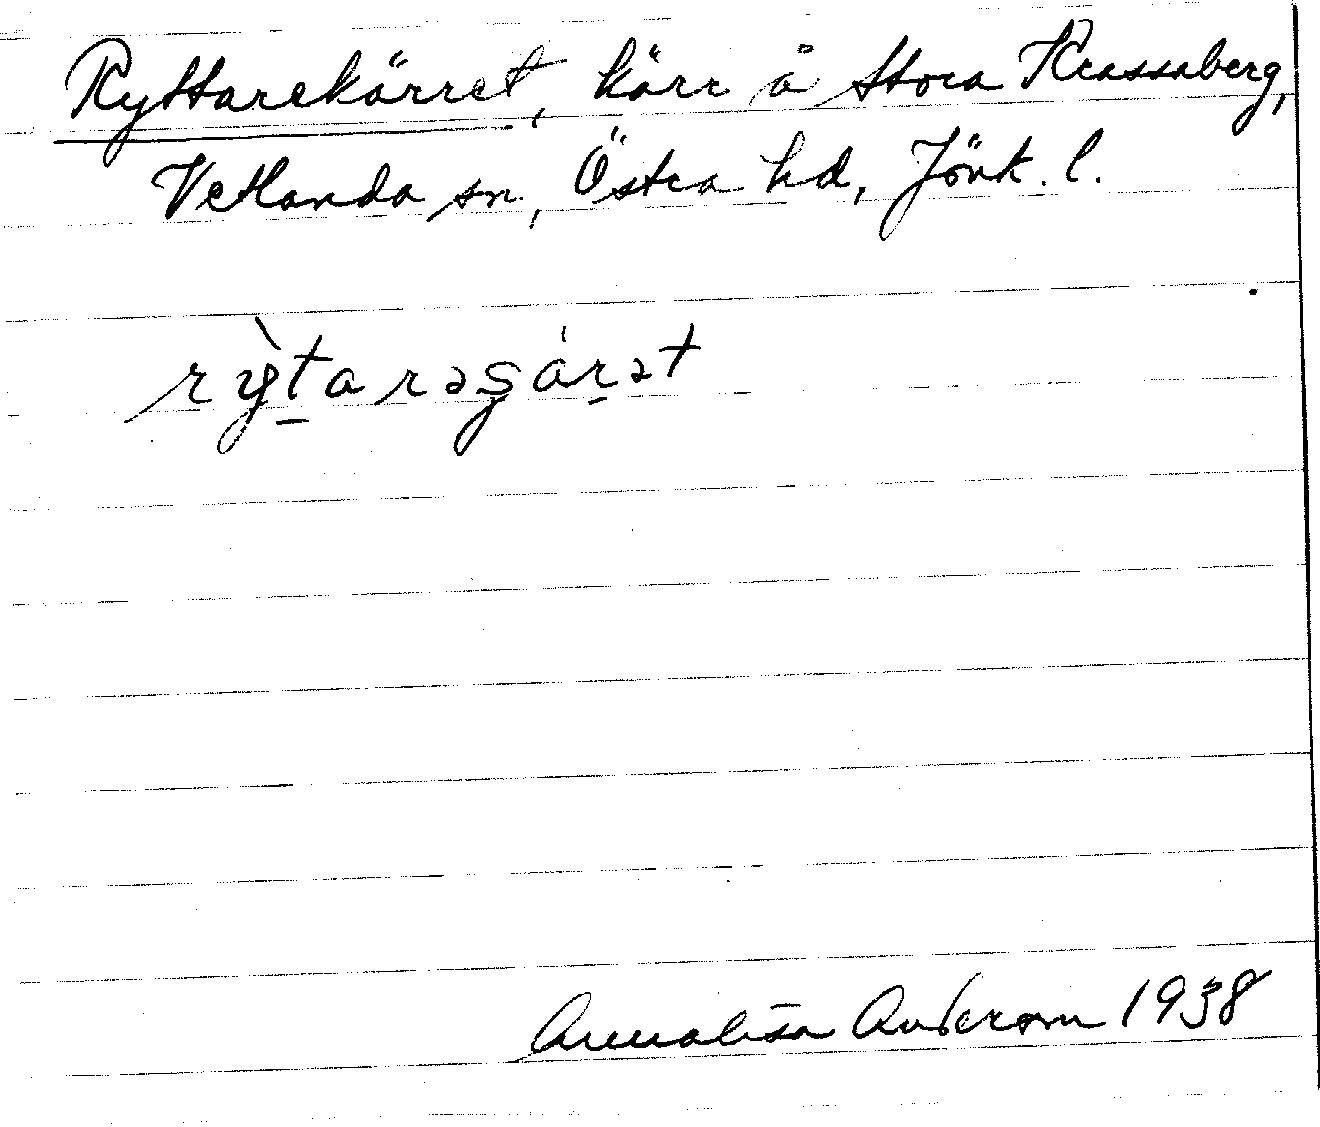 Ryttarekärret, kärr å Stora Krassaberg,
Vetlanda sn, Östra hd, Jönk. l.
rỳtarəgárət
Annalisa Anderson 1938